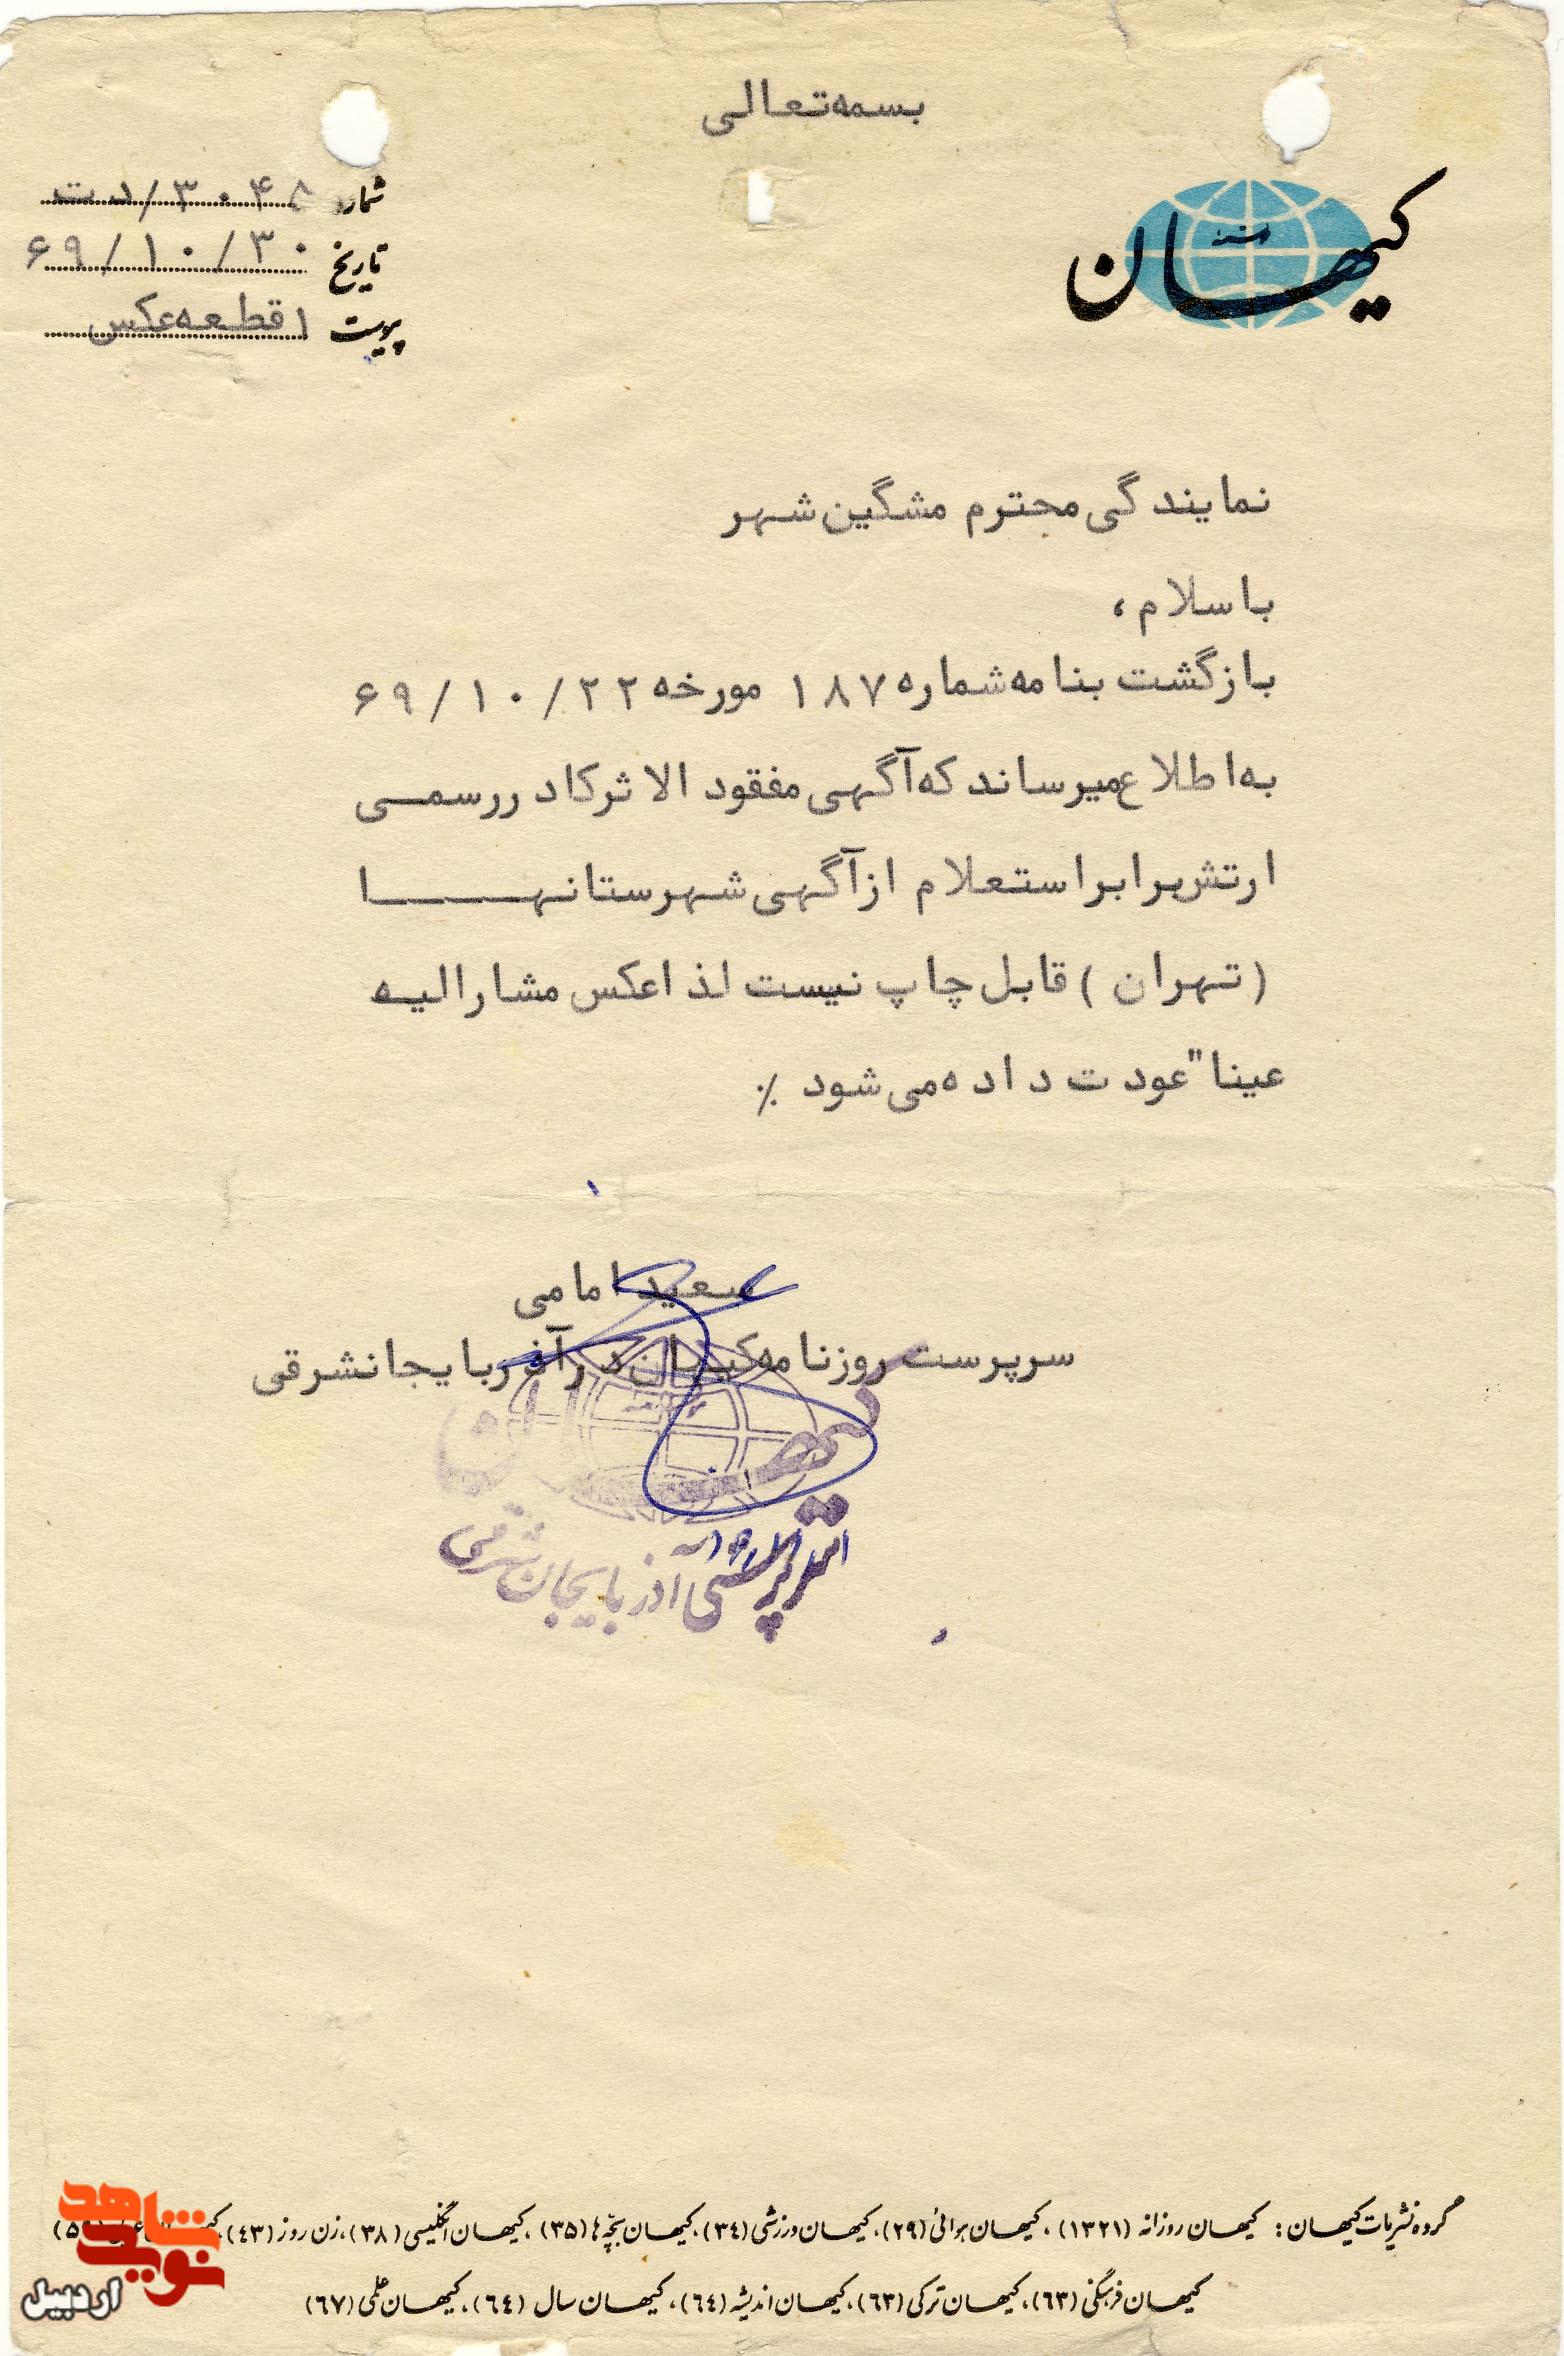 بسمه تعالی
کیهان
شماره ۳۰۴۸/د ت
تاریخ ۶۹/۱۰/۳۰
پیوست ۱ قطعه عکس
نمایندگی محترم مشگین شهر
باسلام ،
بازگشت بنامه شماره ۱۸۷ مورخه ۶۹/۱۰/۲۲
به اطلاع میرساند که آگهی مفقود الاثر کادر رسمی
ارتش برابر استعلام از آگهی شهرستانها
(تهران) قابل چاپ نیست لذا عکس مشارالیه
عینا" عودت داده می شود ٪
سعید امامی
سرپرست روزنامه کیهان در آذربایجانشرقی
کیهان
سرپرستی آذربایجان شرقی
گروه نشریات کیهان: کیهان روزانه (۱۳۲۱)، کیهان هوائی (۲۹)، کیهان ورزشی (۳۴)، کیهان بچه ها (۳۵)، کیهان انگلیسی (۳۸)، زن روز (۴۳)،
کیهان فرهنگی (۶۳)، کیهان ترکی (۶۳)، کیهان اندیشه (۶۴)، کیهان سال (۶۴)، کیهان علمی (۶۷)
نوید شاهد
اردبیل